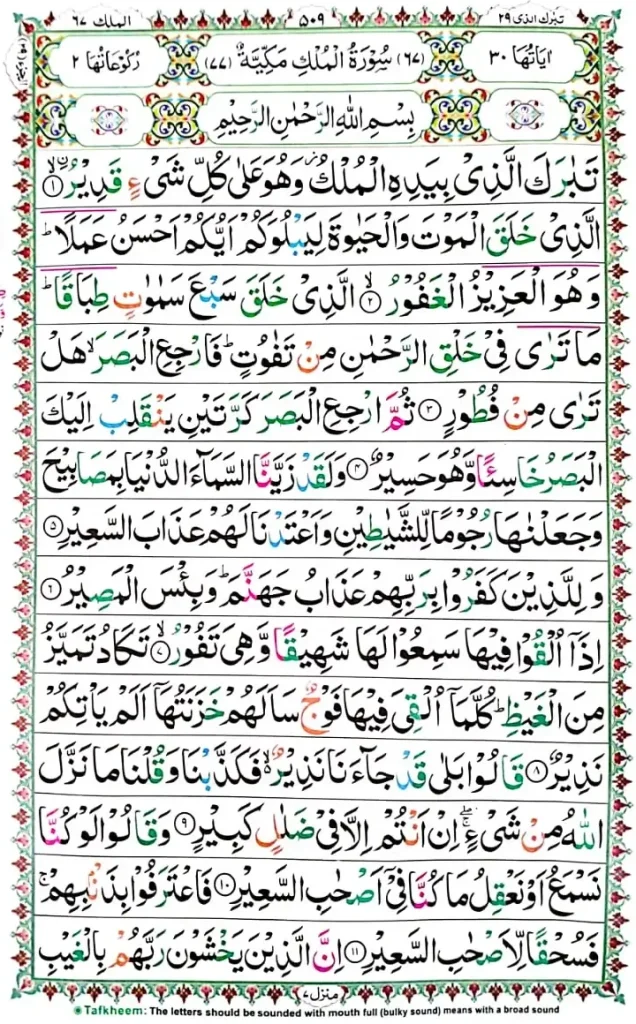 تبٰرك الذی ٢٩
٥٠٩
الملك ٦٧
اٰیَاتُهَا ٣٠
(٦٧) سُوْرَةُ الْمُلْكِ مَكِّیَّةٌ (٧٧)
رُكُوْعَاتُهَا ٢
بِسْمِ اللّٰهِ الرَّحْمٰنِ الرَّحِیْمِ
تَبٰرَكَ الَّذِیْ بِیَدِهِ الْمُلْكُ ؗ وَهُوَ عَلٰی كُلِّ شَیْءٍ قَدِیْرُ ۙ﴿١﴾
الَّذِیْ خَلَقَ الْمَوْتَ وَالْحَیٰوةَ لِیَبْلُوَكُمْ اَیُّكُمْ اَحْسَنُ عَمَلًا ؕ
وَهُوَ الْعَزِیْزُ الْغَفُوْرُ ۙ﴿٢﴾ الَّذِیْ خَلَقَ سَبْعَ سَمٰوٰتٍ طِبَاقًا ؕ
مَا تَرٰی فِیْ خَلْقِ الرَّحْمٰنِ مِنْ تَفٰوُتٍ ؕ فَارْجِعِ الْبَصَرَ ۙ هَلْ
تَرٰی مِنْ فُطُوْرٍ ﴿٣﴾ ثُمَّ ارْجِعِ الْبَصَرَ كَرَّتَیْنِ یَنْقَلِبْ اِلَیْكَ
الْبَصَرُ خَاسِئًا وَّهُوَ حَسِیْرٌ ﴿٤﴾ وَلَقَدْ زَیَّنَّا السَّمَآءَ الدُّنْیَا بِمَصَابِیْحَ
وَجَعَلْنٰهَا رُجُوْمًا لِّلشَّیٰطِیْنِ وَاَعْتَدْنَا لَهُمْ عَذَابَ السَّعِیْرِ ﴿٥﴾
وَلِلَّذِیْنَ كَفَرُوْا بِرَبِّهِمْ عَذَابُ جَهَنَّمَ ؕ وَبِئْسَ الْمَصِیْرُ ﴿٦﴾
اِذَاۤ اُلْقُوْا فِیْهَا سَمِعُوْا لَهَا شَهِیْقًا وَّهِیَ تَفُوْرُ ۙ﴿٧﴾ تَكَادُ تَمَیَّزُ
مِنَ الْغَیْظِ ؕ كُلَّمَاۤ اُلْقِیَ فِیْهَا فَوْجٌ سَاَلَهُمْ خَزَنَتُهَاۤ اَلَمْ یَاْتِكُمْ
نَذِیْرٌ ﴿٨﴾ قَالُوْا بَلٰی قَدْ جَآءَنَا نَذِیْرٌ ۙ۬ فَكَذَّبْنَا وَقُلْنَا مَا نَزَّلَ
اللّٰهُ مِنْ شَیْءٍ ۚۖ اِنْ اَنْتُمْ اِلَّا فِیْ ضَلٰلٍ كَبِیْرٍ ﴿٩﴾ وَقَالُوْا لَوْ كُنَّا
نَسْمَعُ اَوْ نَعْقِلُ مَا كُنَّا فِیْۤ اَصْحٰبِ السَّعِیْرِ ﴿١٠﴾ فَاعْتَرَفُوْا بِذَنْۢبِهِمْ ۚ
فَسُحْقًا لِّاَصْحٰبِ السَّعِیْرِ ﴿١١﴾ اِنَّ الَّذِیْنَ یَخْشَوْنَ رَبَّهُمْ بِالْغَیْبِ
منزل ٧
Tafkheem: The letters should be sounded with mouth full (bulky sound) means with a broad sound